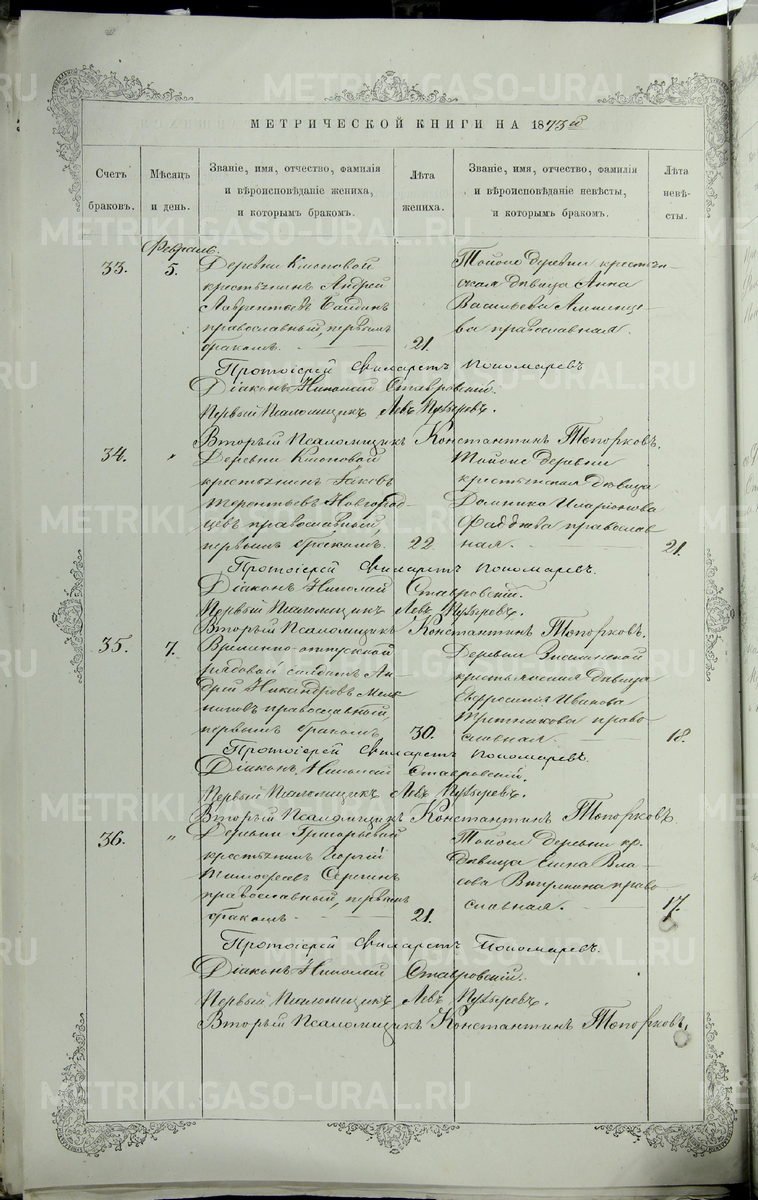 МЕТРИЧЕСКОЙ КНИГИ НА 1873й
Счетъ браковъ.
Мѣсяцъ и день.
Званіе, имя, отчество, фамилія
и вѣроисповѣданіе жениха,
и которымъ бракомъ.
Лѣта
жениха.
Званіе, имя, отчество, фамилія
и вѣроисповѣданіе невѣсты,
и которымъ бракомъ.
Лѣта
невѣ-
сты.
Февраль.
33.
5.
Деревни Клоповой
крестьянинъ Андрей
Лаврентьевъ
православный, первымъ
бракомъ.
21.
Тойже деревни крестьян-
ская дѣвица Анна
Васильева
ва православная.
Протоіерей Филаретъ Пономаревъ
Діаконъ Николай Ставровскій.
Первый Псаломщикъ Левъ Пузыревъ.
Второй Псаломщикъ Константинъ Топорковъ.
34.
"
Деревни Клоповой
крестьянинъ Іаковъ
Терентьевъ Новгород-
цевъ православный,
первымъ бракомъ.
22.
Тойже деревни
крестьянская дѣвица
Домника Иларіонова
Фаддѣева православ
ная.
21.
Протоіерей Филаретъ Пономаревъ.
Діаконъ Николай Ставровскій.
Первый Псаломщикъ Левъ Пузыревъ.
Второй Псаломщикъ Константинъ Топорковъ.
35.
7.
Временно-отпускной
рядовой солдатъ Ан-
дрей Никандровъ Мель
никовъ православный,
первымъ бракомъ.
30.
Деревни
крестьянская дѣвица
Евфросинія Иванова
право-
славная.
18.
Протоіерей Филаретъ Пономаревъ.
Діаконъ Николай Ставровскій.
Первый Псаломщикъ Левъ Пузыревъ.
Второй Псаломщикъ Константинъ Топорковъ
36.
"
Деревни Григорьевской
крестьянинъ Георгій
Тимофеевъ Сергинъ
православный, первымъ
бракомъ.
21.
Тойже деревни кр.
дѣвица Елена Вла-
сова право-
славная.
17.
Протоіерей Филаретъ Пономаревъ.
Діаконъ Николай Ставровскій.
Первый Псаломщикъ Левъ Пузыревъ.
Второй Псаломщикъ Константинъ Топорковъ.
METRIKI.GASO-URAL.RU